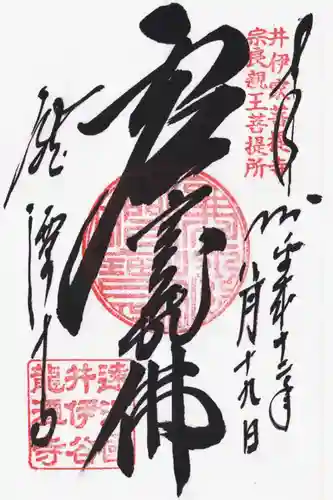 井伊家菩提寺
宗良親王菩提所
奉拝
平成二十二年
八月十九日
虚空蔵佛
龍潭寺
遠江國
井伊谷
龍潭寺